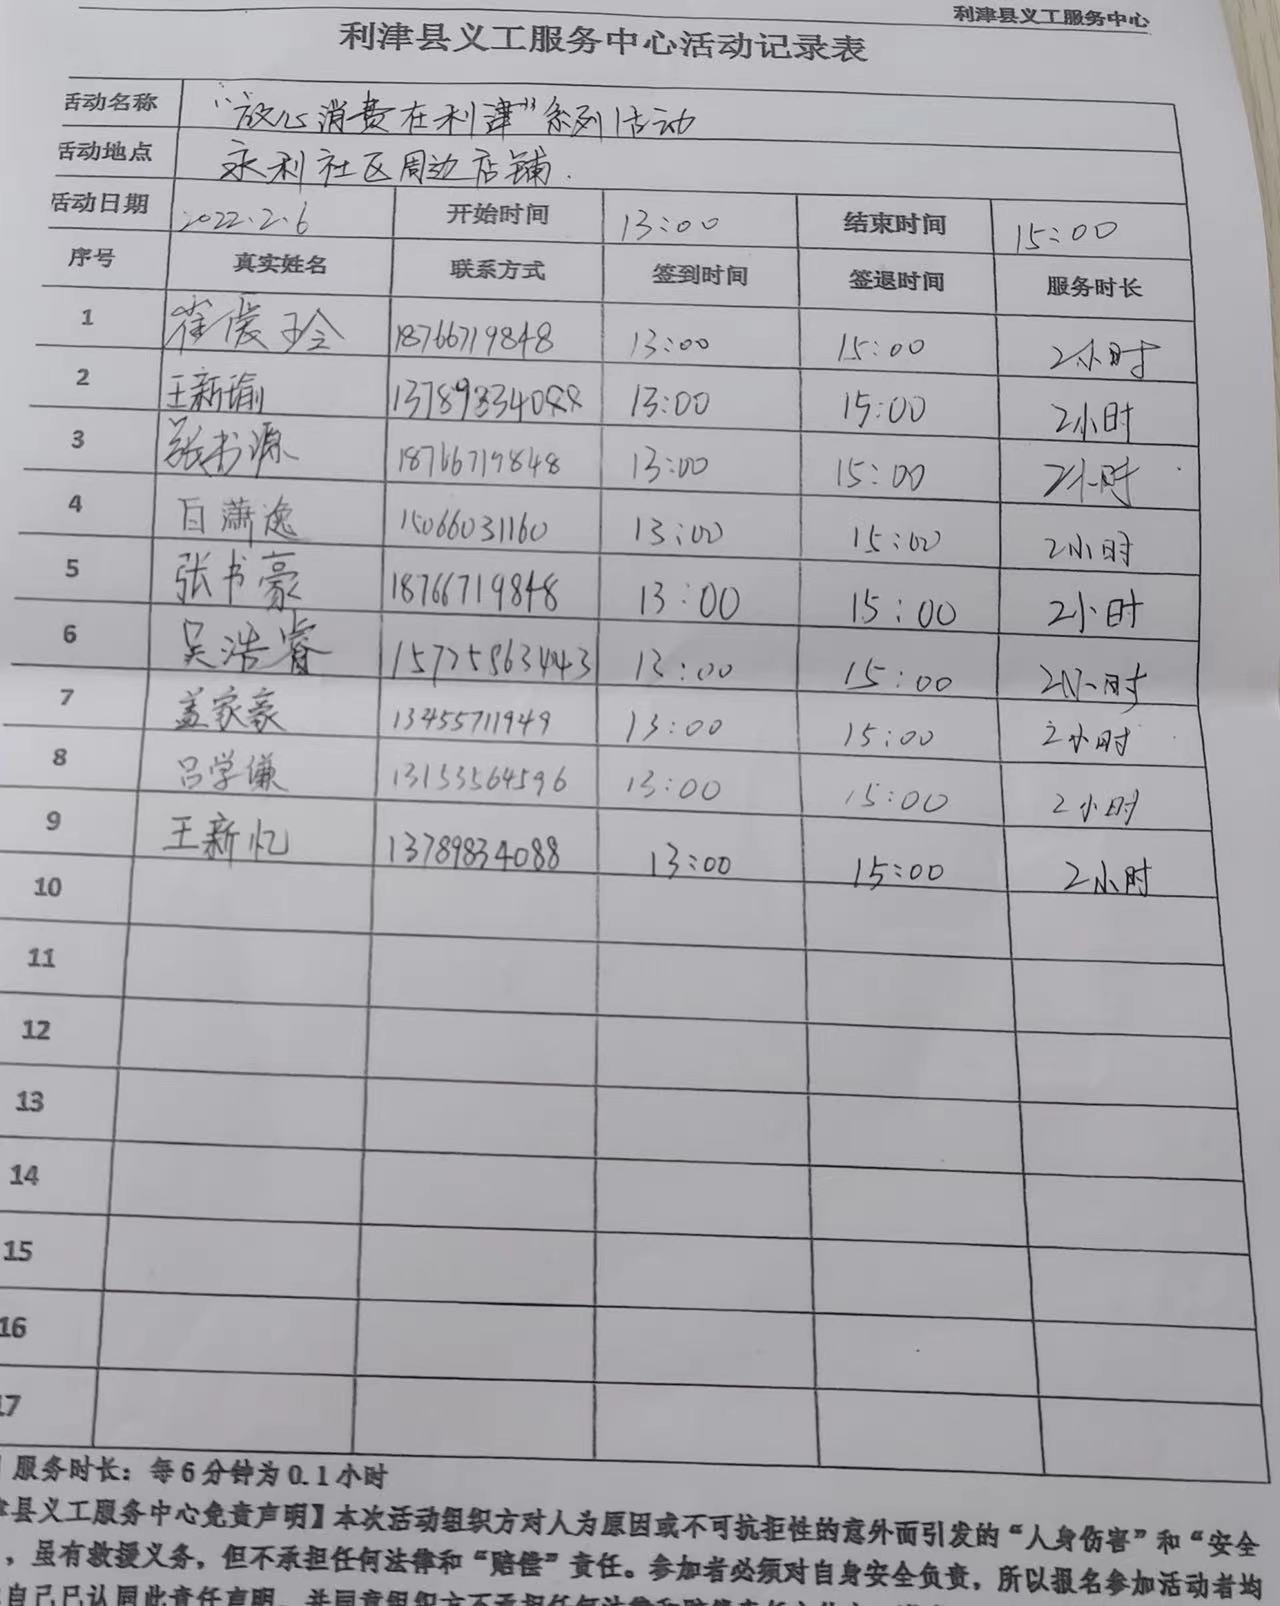 利津县义工服务中心
利津县义工服务中心活动记录表
活动名称 “放心消费在利津”系列活动
活动地点 永利社区周边店铺.
活动日期 2022.2.6 开始时间 13:00 结束时间 15:00
序号 真实姓名 联系方式 签到时间 签退时间 服务时长
1 崔爱玲 18766719848 13:00 15:00 2小时
2 王新瑜 13789834088 13:00 15:00 2小时
3 张书源 18766719848 13:00 15:00 2小时
4 白萧逸 15066031160 13:00 15:00 2小时
5 张书豪 18766719848 13:00 15:00 2小时
6 吴浩睿 13:00 15:00 2小时
7 盖家豪 13455711949 13:00 15:00 2小时
8 吕学谦 13153564596 13:00 15:00 2小时
9 王新忆 13789834088 13:00 15:00 2小时
10
11
12
13
14
15
16
17
服务时长：每6分钟为0.1小时
津县义工服务中心免责声明】本次活动组织方对人为原因或不可抗拒性的意外而引发的“人身伤害”和“安全
，虽有救援义务，但不承担任何法律和“赔偿”责任。参加者必须对自身安全负责，所以报名参加活动者均
自己已认同此责任声明，并同意组织方不承担任何法律和赔偿责任